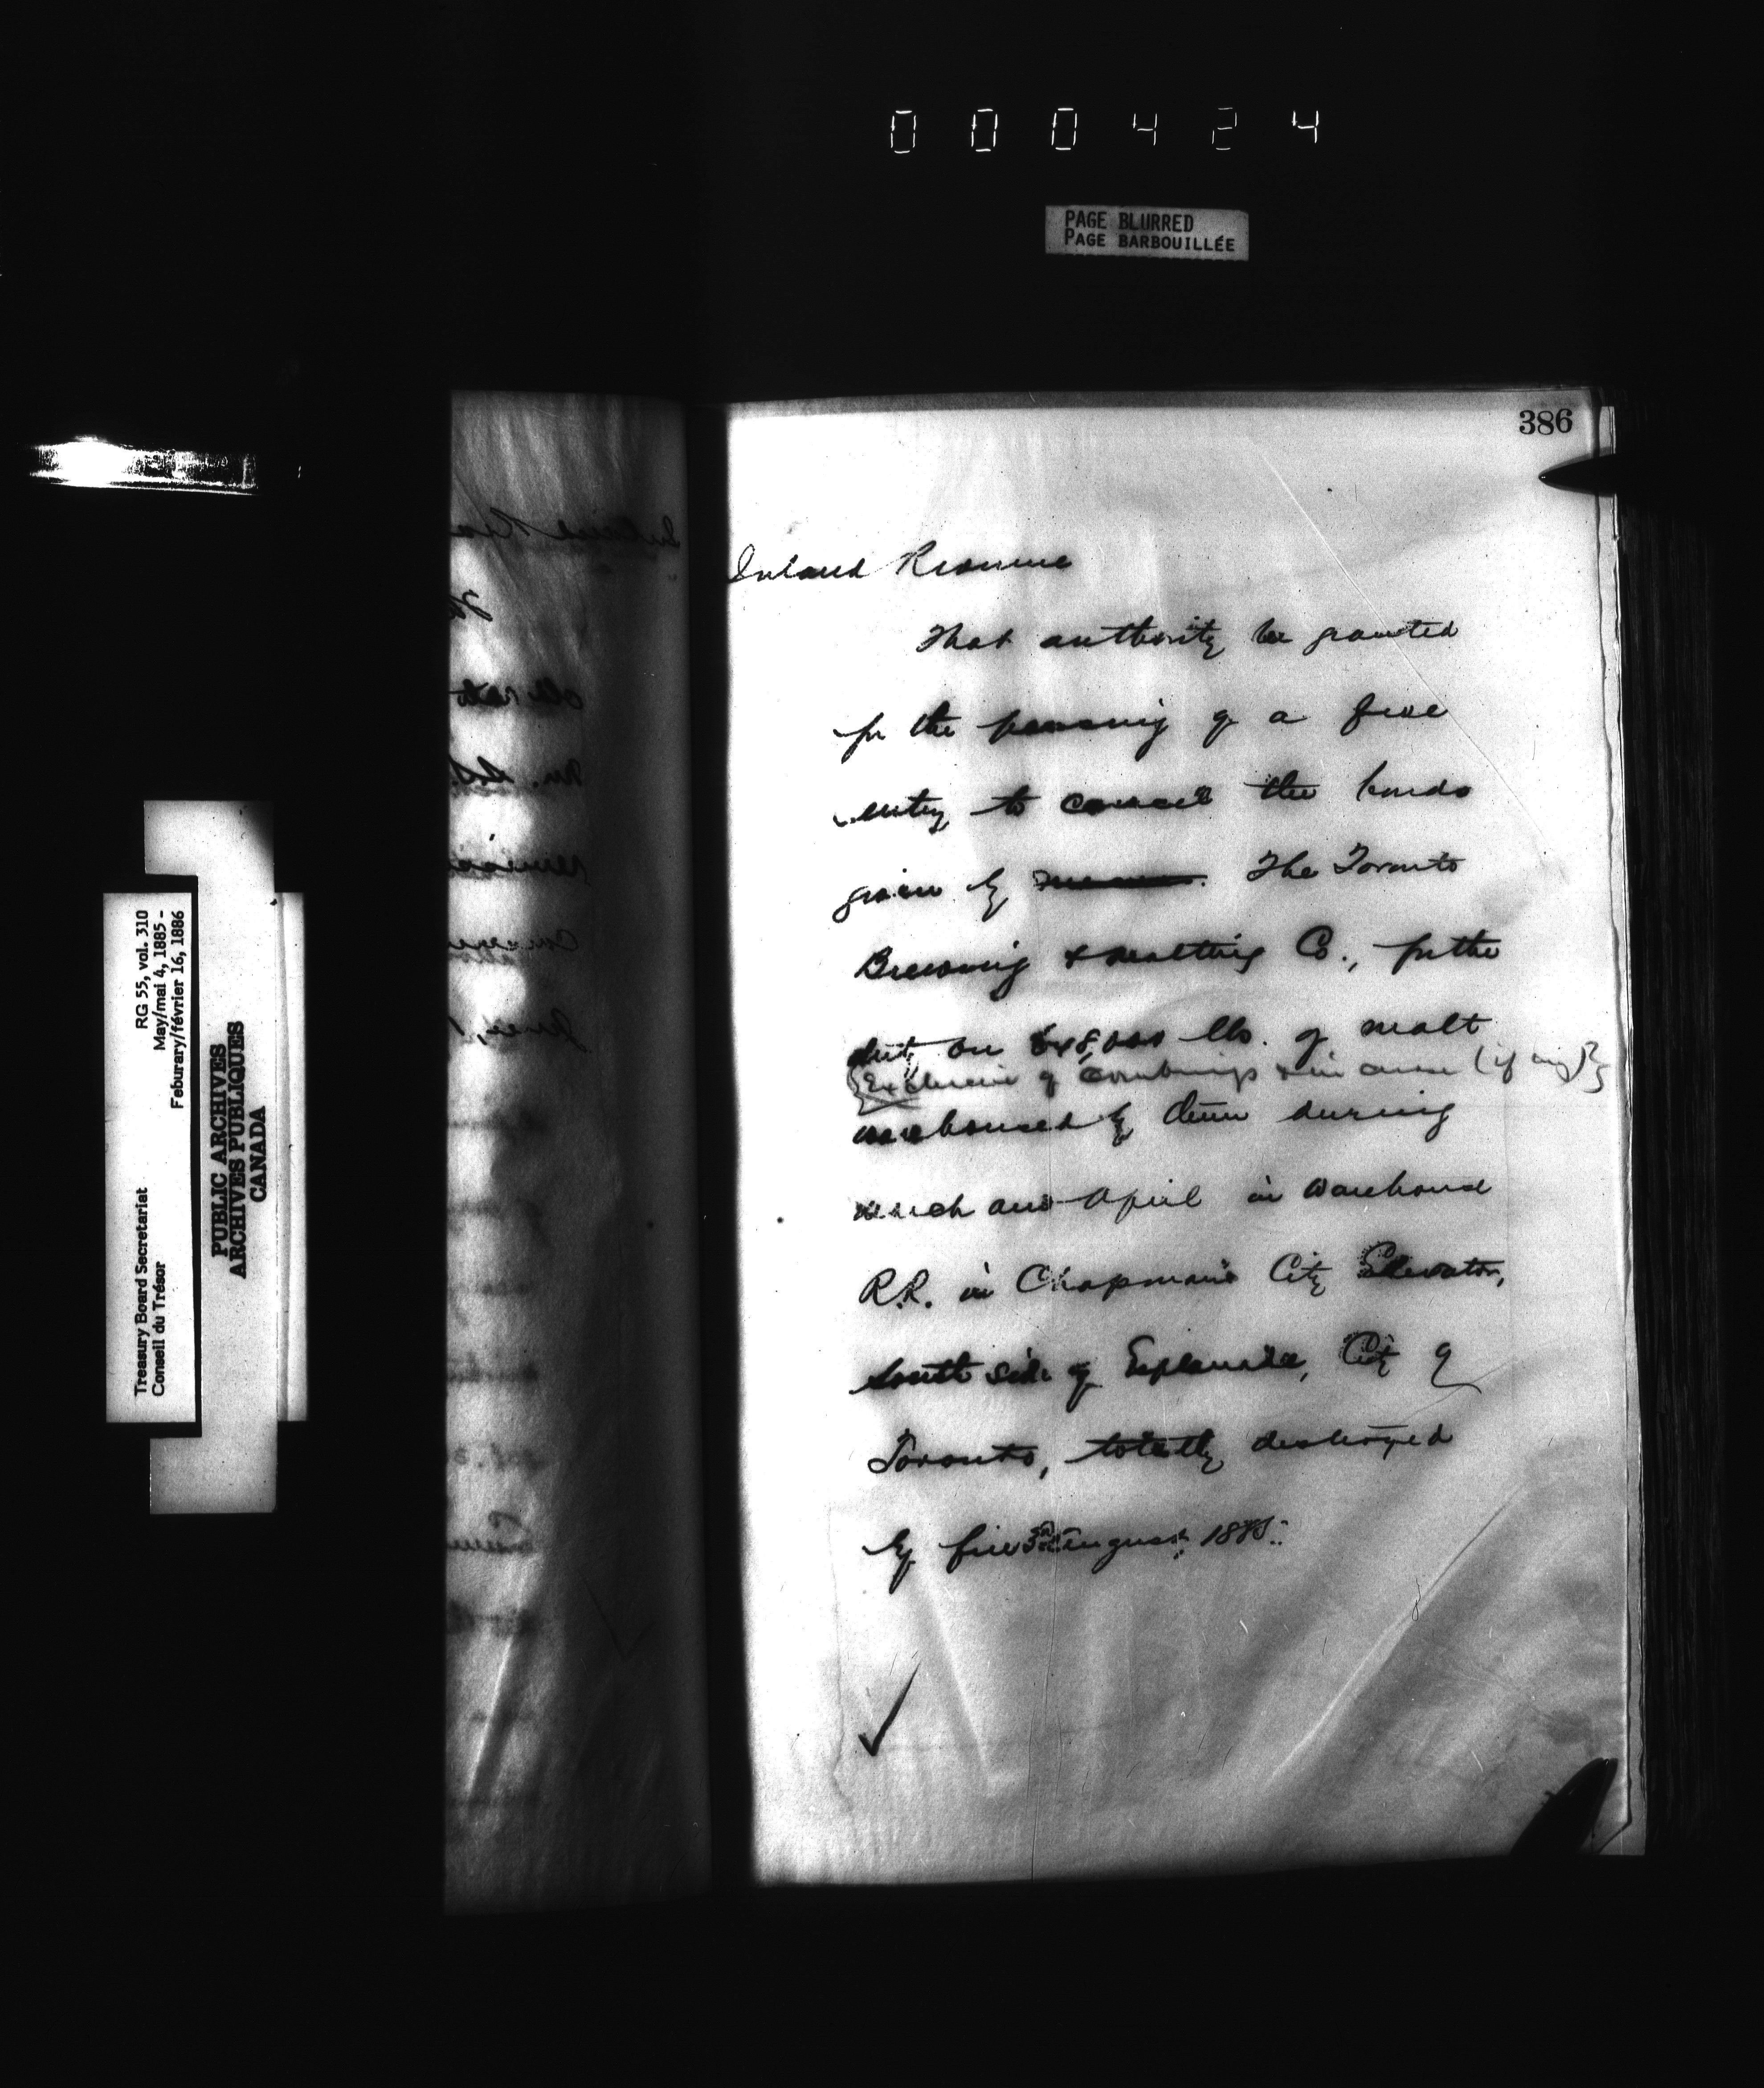 000424
PAGE BLURRED
PAGE BARBOUILLÉE
386
RG 55, vol. 310
May/mai 4, 1885 -
Feburary/février 16, 1886
Treasury Board Secretariat
Conseil du Trésor
PUBLIC ARCHIVES
ARCHIVES PUBLIQUES
CANADA
Inland Revenue
That authority be granted
for the passing of a free
entry to cancel the bonds
given by The Toronto
Brewing & Malting Co., for the
duty on 648,000 lbs. of malt
{Exclusive of combings (if any)}
warehoused by them during
March and April in Warehouse
R.R. in Chapman's City Elevator,
South side of Esplanade, City of
Toronto, totally destroyed
by fire 3rd August 1885.